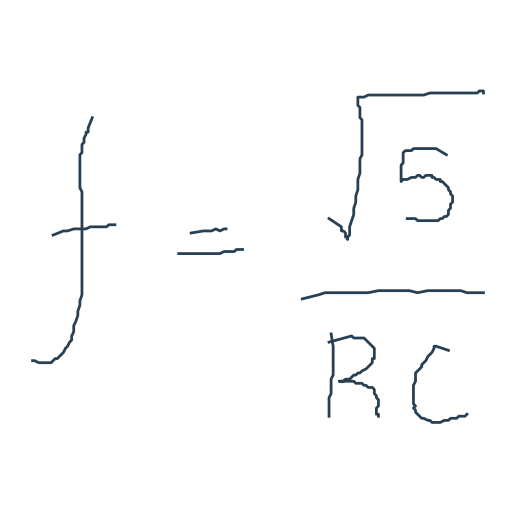 f = \frac{\sqrt{5}}{RC}